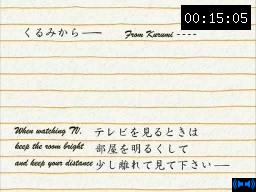 00:15:05
くるみから—— From Kurumi ----
When watching TV, テレビを見るときは
keep the room bright 部屋を明るくして
and keep your distance 少し離れて見て下さい——